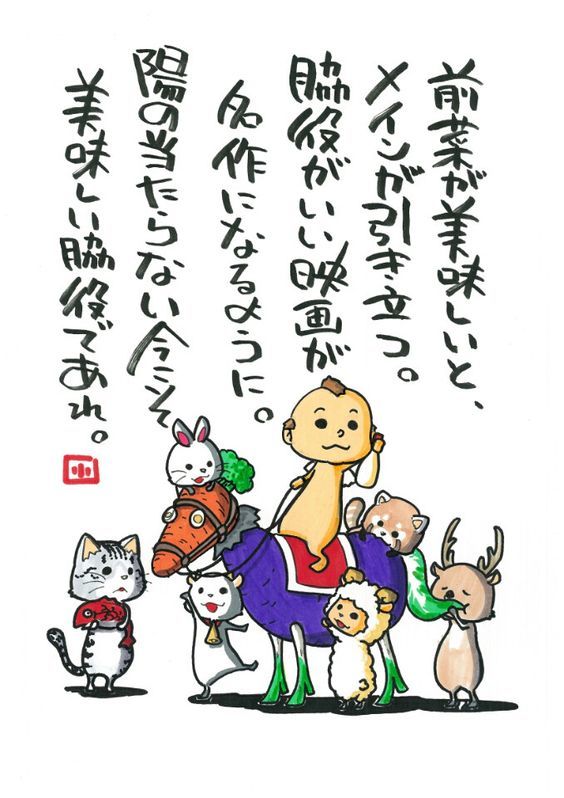 前菜が美味しいと、
メインが引き立つ。
脇役がいい映画が
名作になるように。
陽の当たらない今こそ
美味しい脇役であれ。
小